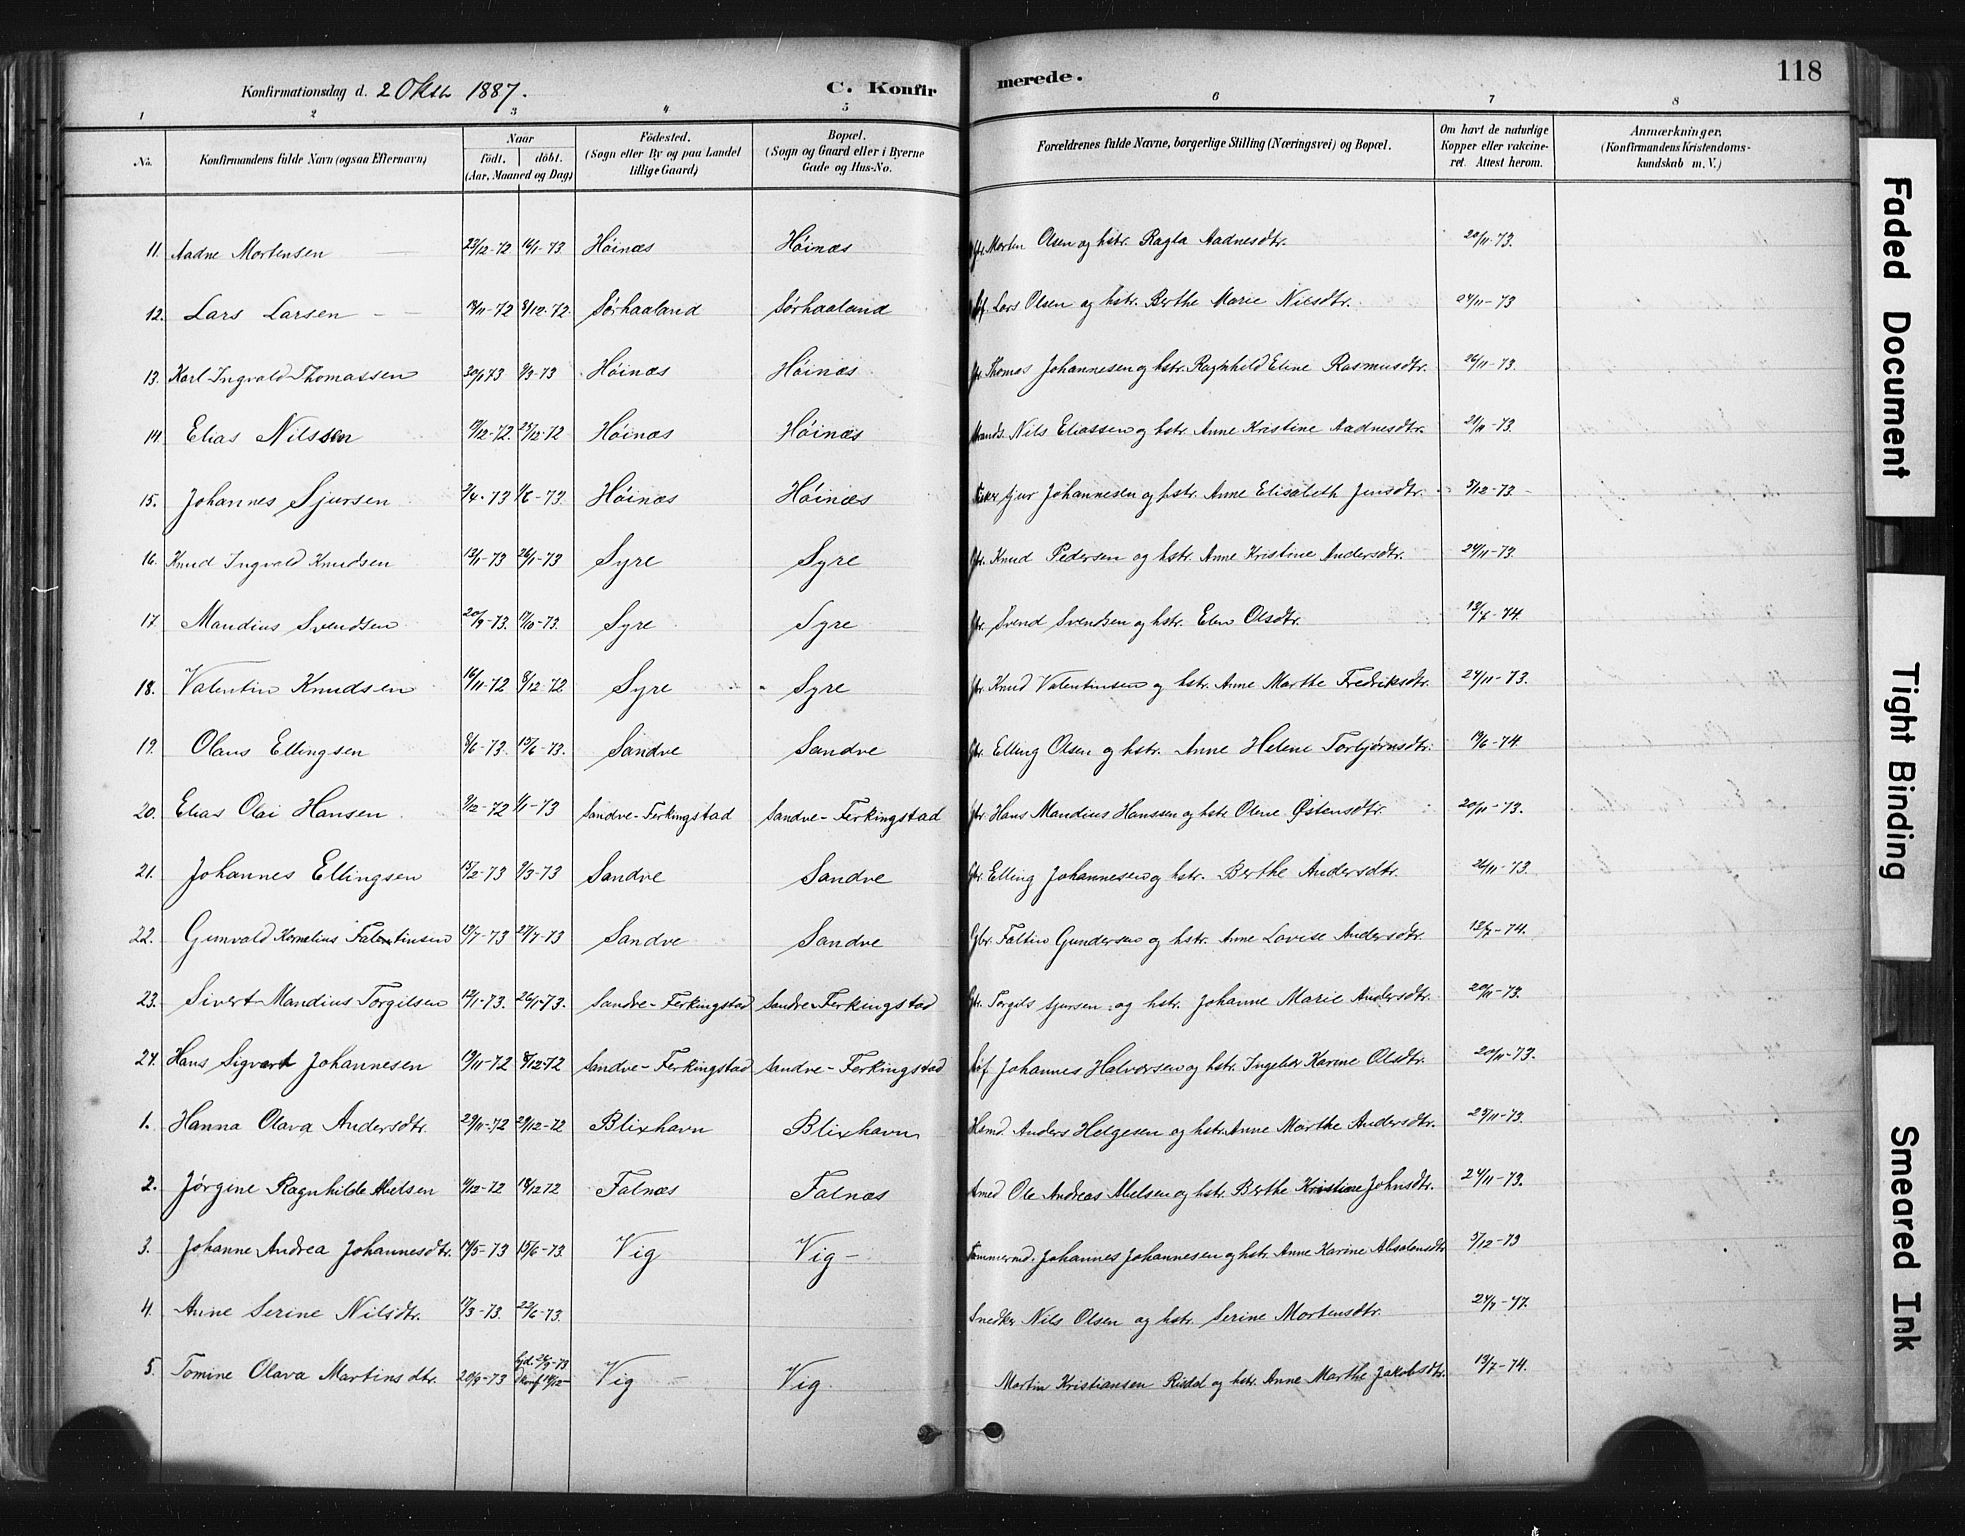 Konfirmationsdag d. 2 Oktb 1887. C. Konfirmerede. 118
1 2 3 4 5 6 7 8
No. Konfirmandens fulde Navn (ogsaa Efternavn) Naar født. døbt. (Aar, Maaned og Dag) Fødested. (Sogn eller By og paa Landet tillige Gaard) Bopæl. (Sogn og Gaard eller i Byerne Gade og Hus-No. Forældrenes fulde Navne, borgerlige Stilling (Næringsvei) og Bopæl. Om havt de naturlige Kopper eller vakcineret. Attest herom. Anmærkninger. (Konfirmandens Kristendomskundskab m. V.)
11. Aadne Mortensen 22/12-72 16/1-73 Höinæs Höinæs Morten Olsen og hstr. Ragla Aadnesdtr. 20/11-73.
12. Lars Larsen 8/12-72 Sørhaaland Sørhaaland Lars Olsen og hstr. Berthe Marie Nilsdtr. 24/11-73
13. Karl Ingvald Thomassen 30/1 73 9/3-73 Höinæs Höinæs Thomas Johannesen og hstr. Raghhild Eline Rasmusdtr. 26/11-73.
14 Elias Nilssen 29/12-72 Höinæs Höinæs Nils Eliassen og hstr. Anne Kristine Aadnesdtr. 21/11-73.
15. Johannes Sjursen 2/4-73 1/6-73. Höinæs Höinæs Sjur Johannesen og hstr. Anne Elisabeth Jensdtr. 3/12-73
16. Knud Ingvald Knudsen 12/1-73 26/1-73 Syre Syre Gbr. Knud Pedersen og hstr. Anne Kristine Andersdtr. 24/11-73.
17. Mandius Svendsen 20/9-73. Syre Syre Gbr. Svend Svendsen og hstr. Elen Olsdtr. 13/7-74.
18. Valentin Knudsen 16/11-72 8/12-72 Syre Syre Gbr. Knud Valentinsen og hstr. Anne Marthe Fredriksdtr. 24/11-73.
19. Olaus Ellingsen 8/6-73. 15/6-73. Sandve Sandve Gbr. Elling Olsen og hstr. Anne Helene Torbjørnsdtr. 19/6-74.
20. Elias Olai Hansen 9/12-72 1/1-73 Sandve-Ferkingstad Sandve-Ferkingstad Gbr. Hans Mandius Hanssen og hstr Oline Østensdtr. 20/11-73.
21. Johannes Ellingsen 15/2-73 9/3-73 Sandve Sandve Gbr. Elling Johannesen og hstr. Berthe Andersdtr. 26/11-73.
22. Gunvald Kornelius Falentinsen 27/7-73 Sandve Sandve Gbr. Faltin Gundersen og hstr. Anne Lovise Andersdtr. 13/7-74.
23. Sivert Mandius Torgilsen 12/1-73. 26/1-73. Sandve-Ferkingstad Sandve-Ferkingstad Gbr. Torgils Sjursen og hstr. Johanne Marie Andersdtr. 20/11-73.
24. Hans Sigvart Johannesen 19/11-72 8/12-72 Sandve-Ferkingstad Sandve-Ferkingstad Johannes Halvorsen og hstr. Ingebor Karine Olsdtr. 20/11-73.
1. Hanna Olava Andersdtr. 29/11-72 29/12-72 Blixhavn Blixhavn Hsmd. Anders Helgesen og hstr. Anne Marthe Andersdtr. 23/11-73.
2. Jørgine Ragnhilde Abelsen Falnæs Falnæs Ole Andreas Abelsen og hstr. Berthe Kristine Johnsdtr. 24/11-73.
3. Johanne Andrea Johannesdtr. 15/6-73. Vig Vig- Tømmermd. Johannes Johannesen og hstr. Anne Karine Absalonsdtr 3/12-73
4. Anne Serine Nilsdtr. 17/3-73. 22/6-73. Snedker Nils Olsen og hstr. Serine Mortensdtr.
5. Tomine Olava Martinsdtr. 20/9-73 Vig Vig Martin Kristiansen og hstr. Anne Marthe Jakobsdtr. 13/7-74.
Faded Document
Tight Binding
Smeared Ink